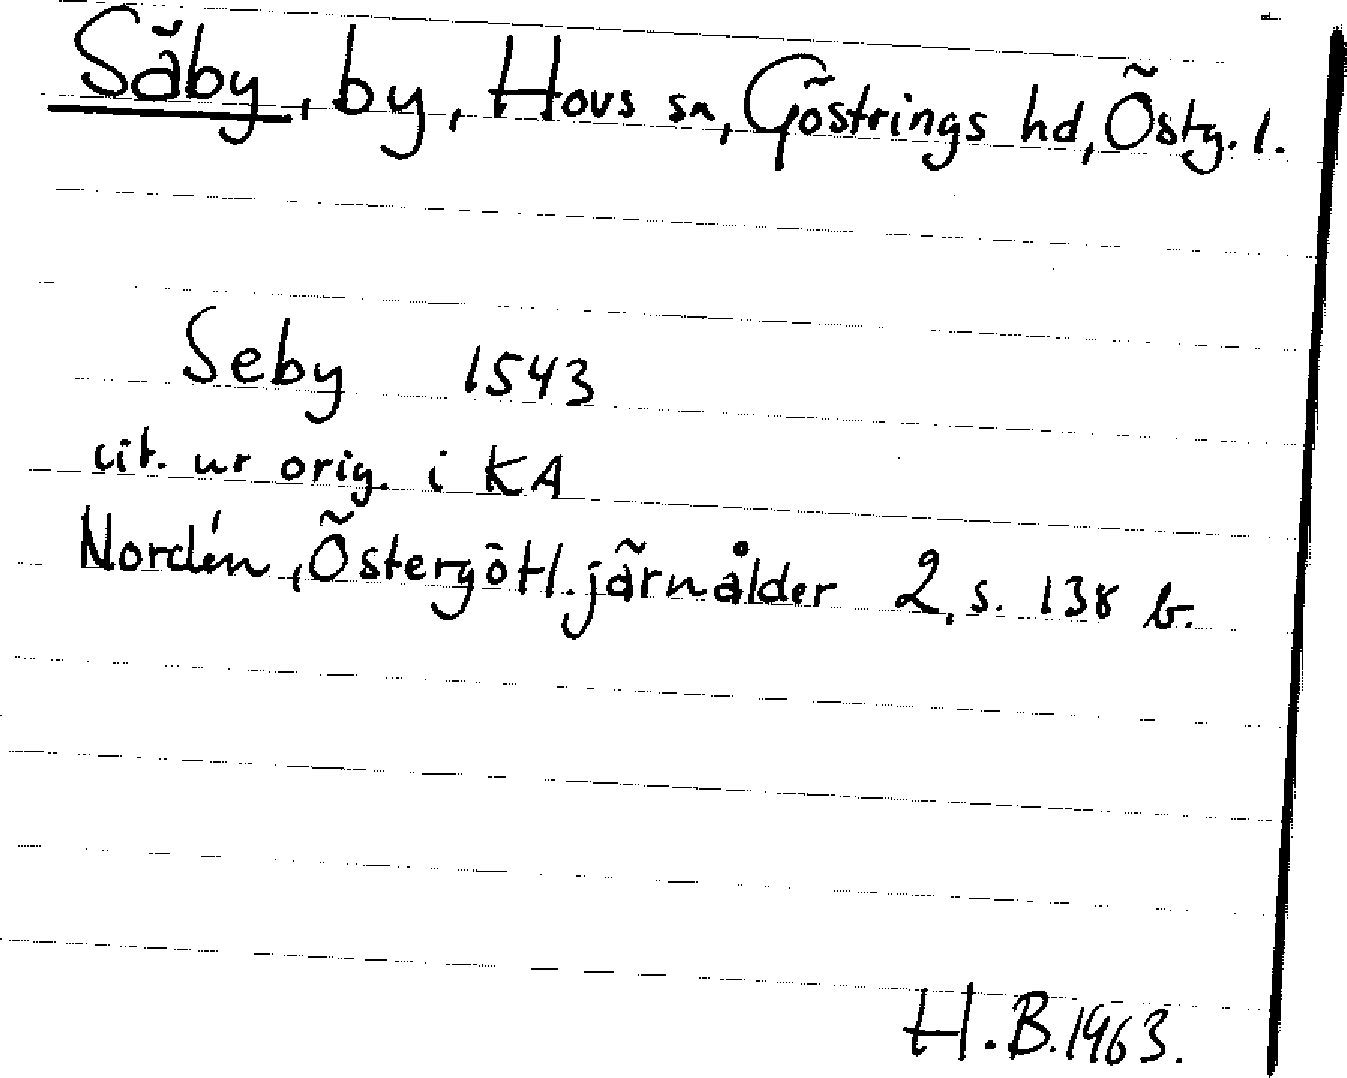 Säby, by, Hovs sn, Göstrings hd, Östg. l.
Seby 1543
cit. ur orig. i KA
Nordén, Östergötl. järnålder 2, s. 138 b.
H.B. 1963.